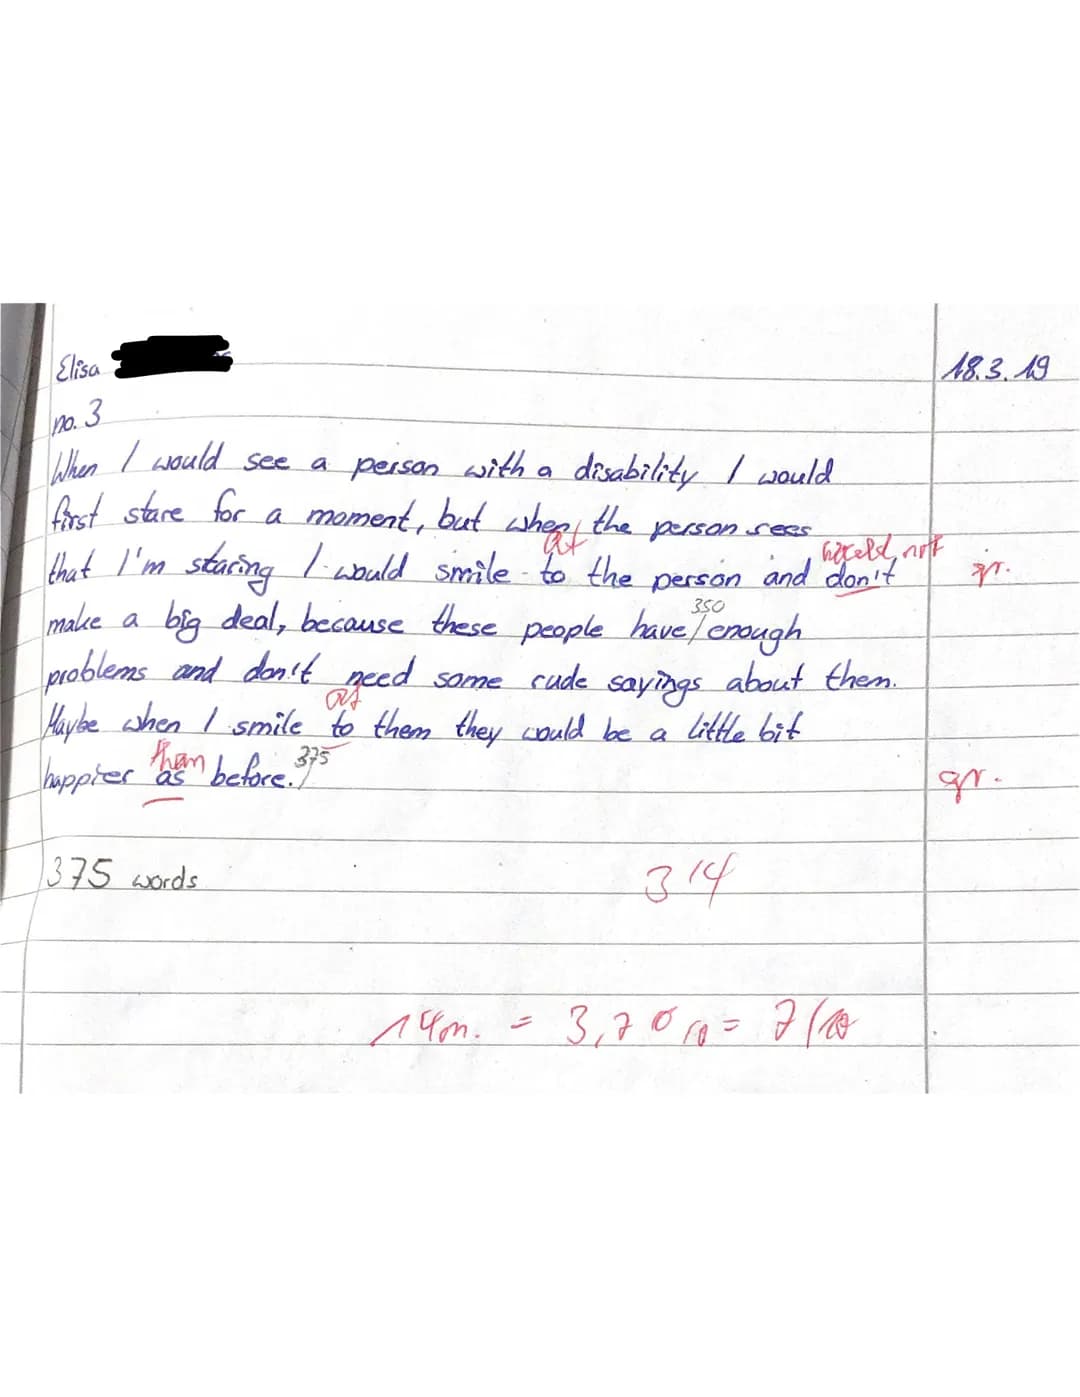 Elisa
18.3.19
no. 3
When I would see a person with a disability I would
first stare for a moment, but when the person sees
at would not
that I'm staring I would smile to the person and don't gr.
350
make a big deal, because these people have/enough
problems and don't need some rude sayings about them.
at
Maybe when I smile to them they would be a little bit
than 375
happier as before./ gr.
375 words
314
14m. = 3,7 % = 7/10